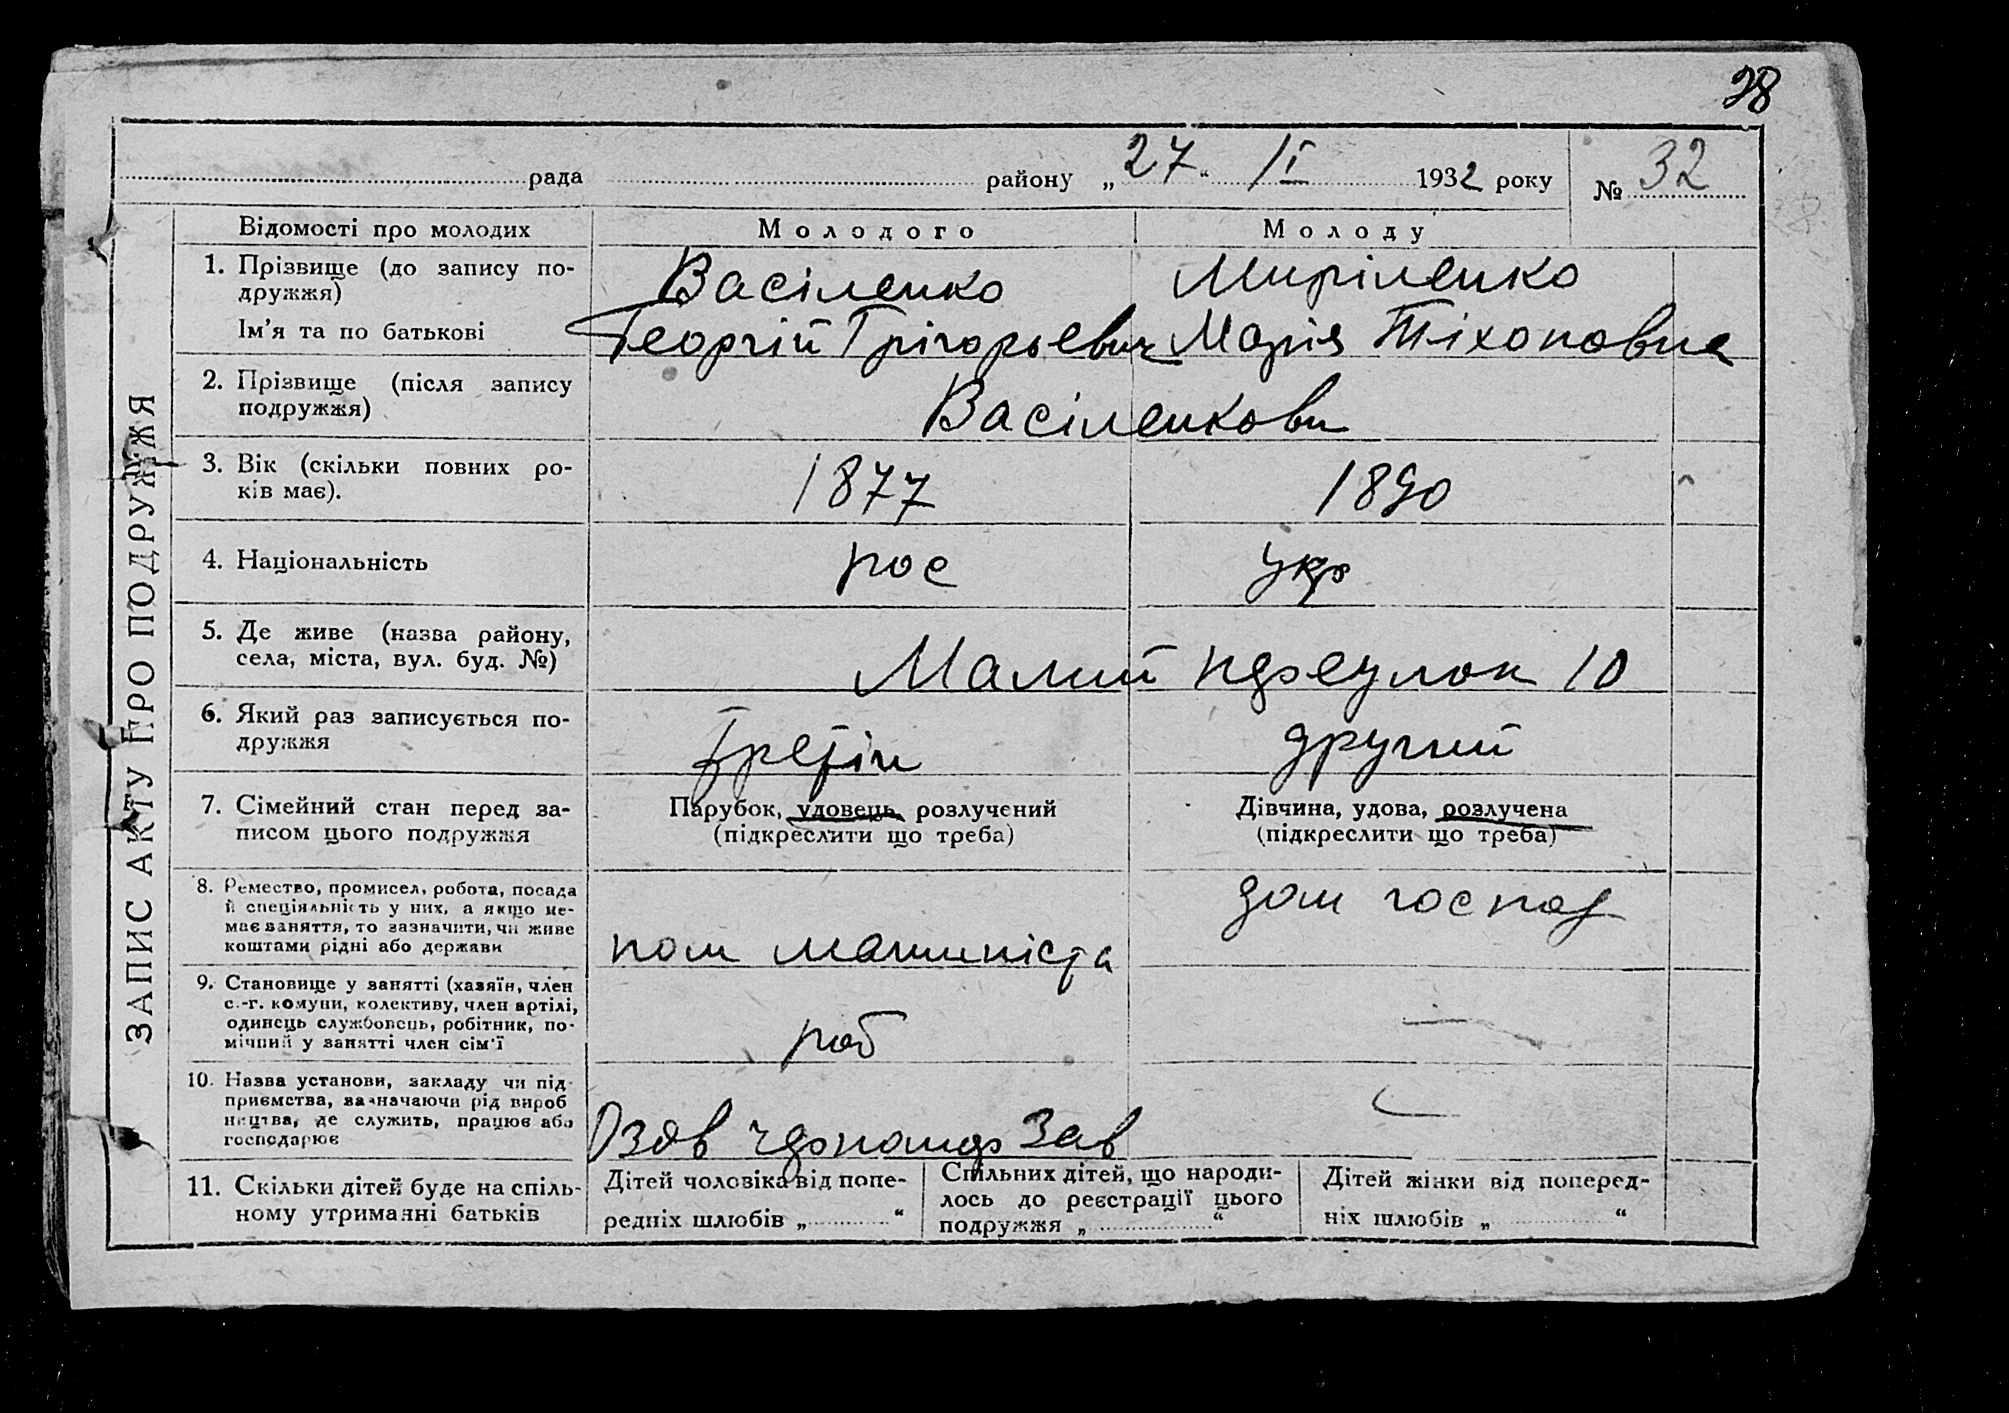 28
рада району „27“ II 1932 року № 32
Відомості про молодих
Молодого
Молоду
1. Прізвище (до запису по-
дружжя)
Васіленко
Миріленко
Ім’я та по батькові
Георгій Грігорьевич
Марія Тіхоновна
2. Прізвище (після запису
подружжя)
Васіленкови
3. Вік (скільки повних ро-
ків має).
1877
1890
4. Національність
рос
укр
5. Де живе (назва району,
села, міста, вул. буд. №)
Малий переулок 10
6. Який раз записується по-
дружжя
третій
другий
7. Сімейний стан перед за-
писом цього подружжя
Парубок, удовець, розлучений
(підкреслити що треба)
Дівчина, удова, розлучена
(підкреслити що треба)
8. Ремество, промисел, робота, посада
й спеціяльність у них, а якщо не-
має заняття, то зазначити, чи живе
коштами рідні або держави
пом машиніста
дом господ
9. Становище у занятті (хазяїн, член
с.-г. комуни, колективу, член артілі,
одинець службовець, робітник, по-
мічний у занятті член сім’ї
роб
10. Назва установи, закладу чи під-
приємства, зазначаючи рід вироб
ництва, де служить, працює або
господарює
Зав
11. Скільки дітей буде на спіль-
ному утриманні батьків
Дітей чоловіка від попе-
редніх шлюбів „ “
Спільних дітей, що народи-
лось до реєстрації цього
подружжя „ “
Дітей жінки від поперед-
ніх шлюбів „ “
ЗАПИС АКТУ ПРО ПОДРУЖЖЯ